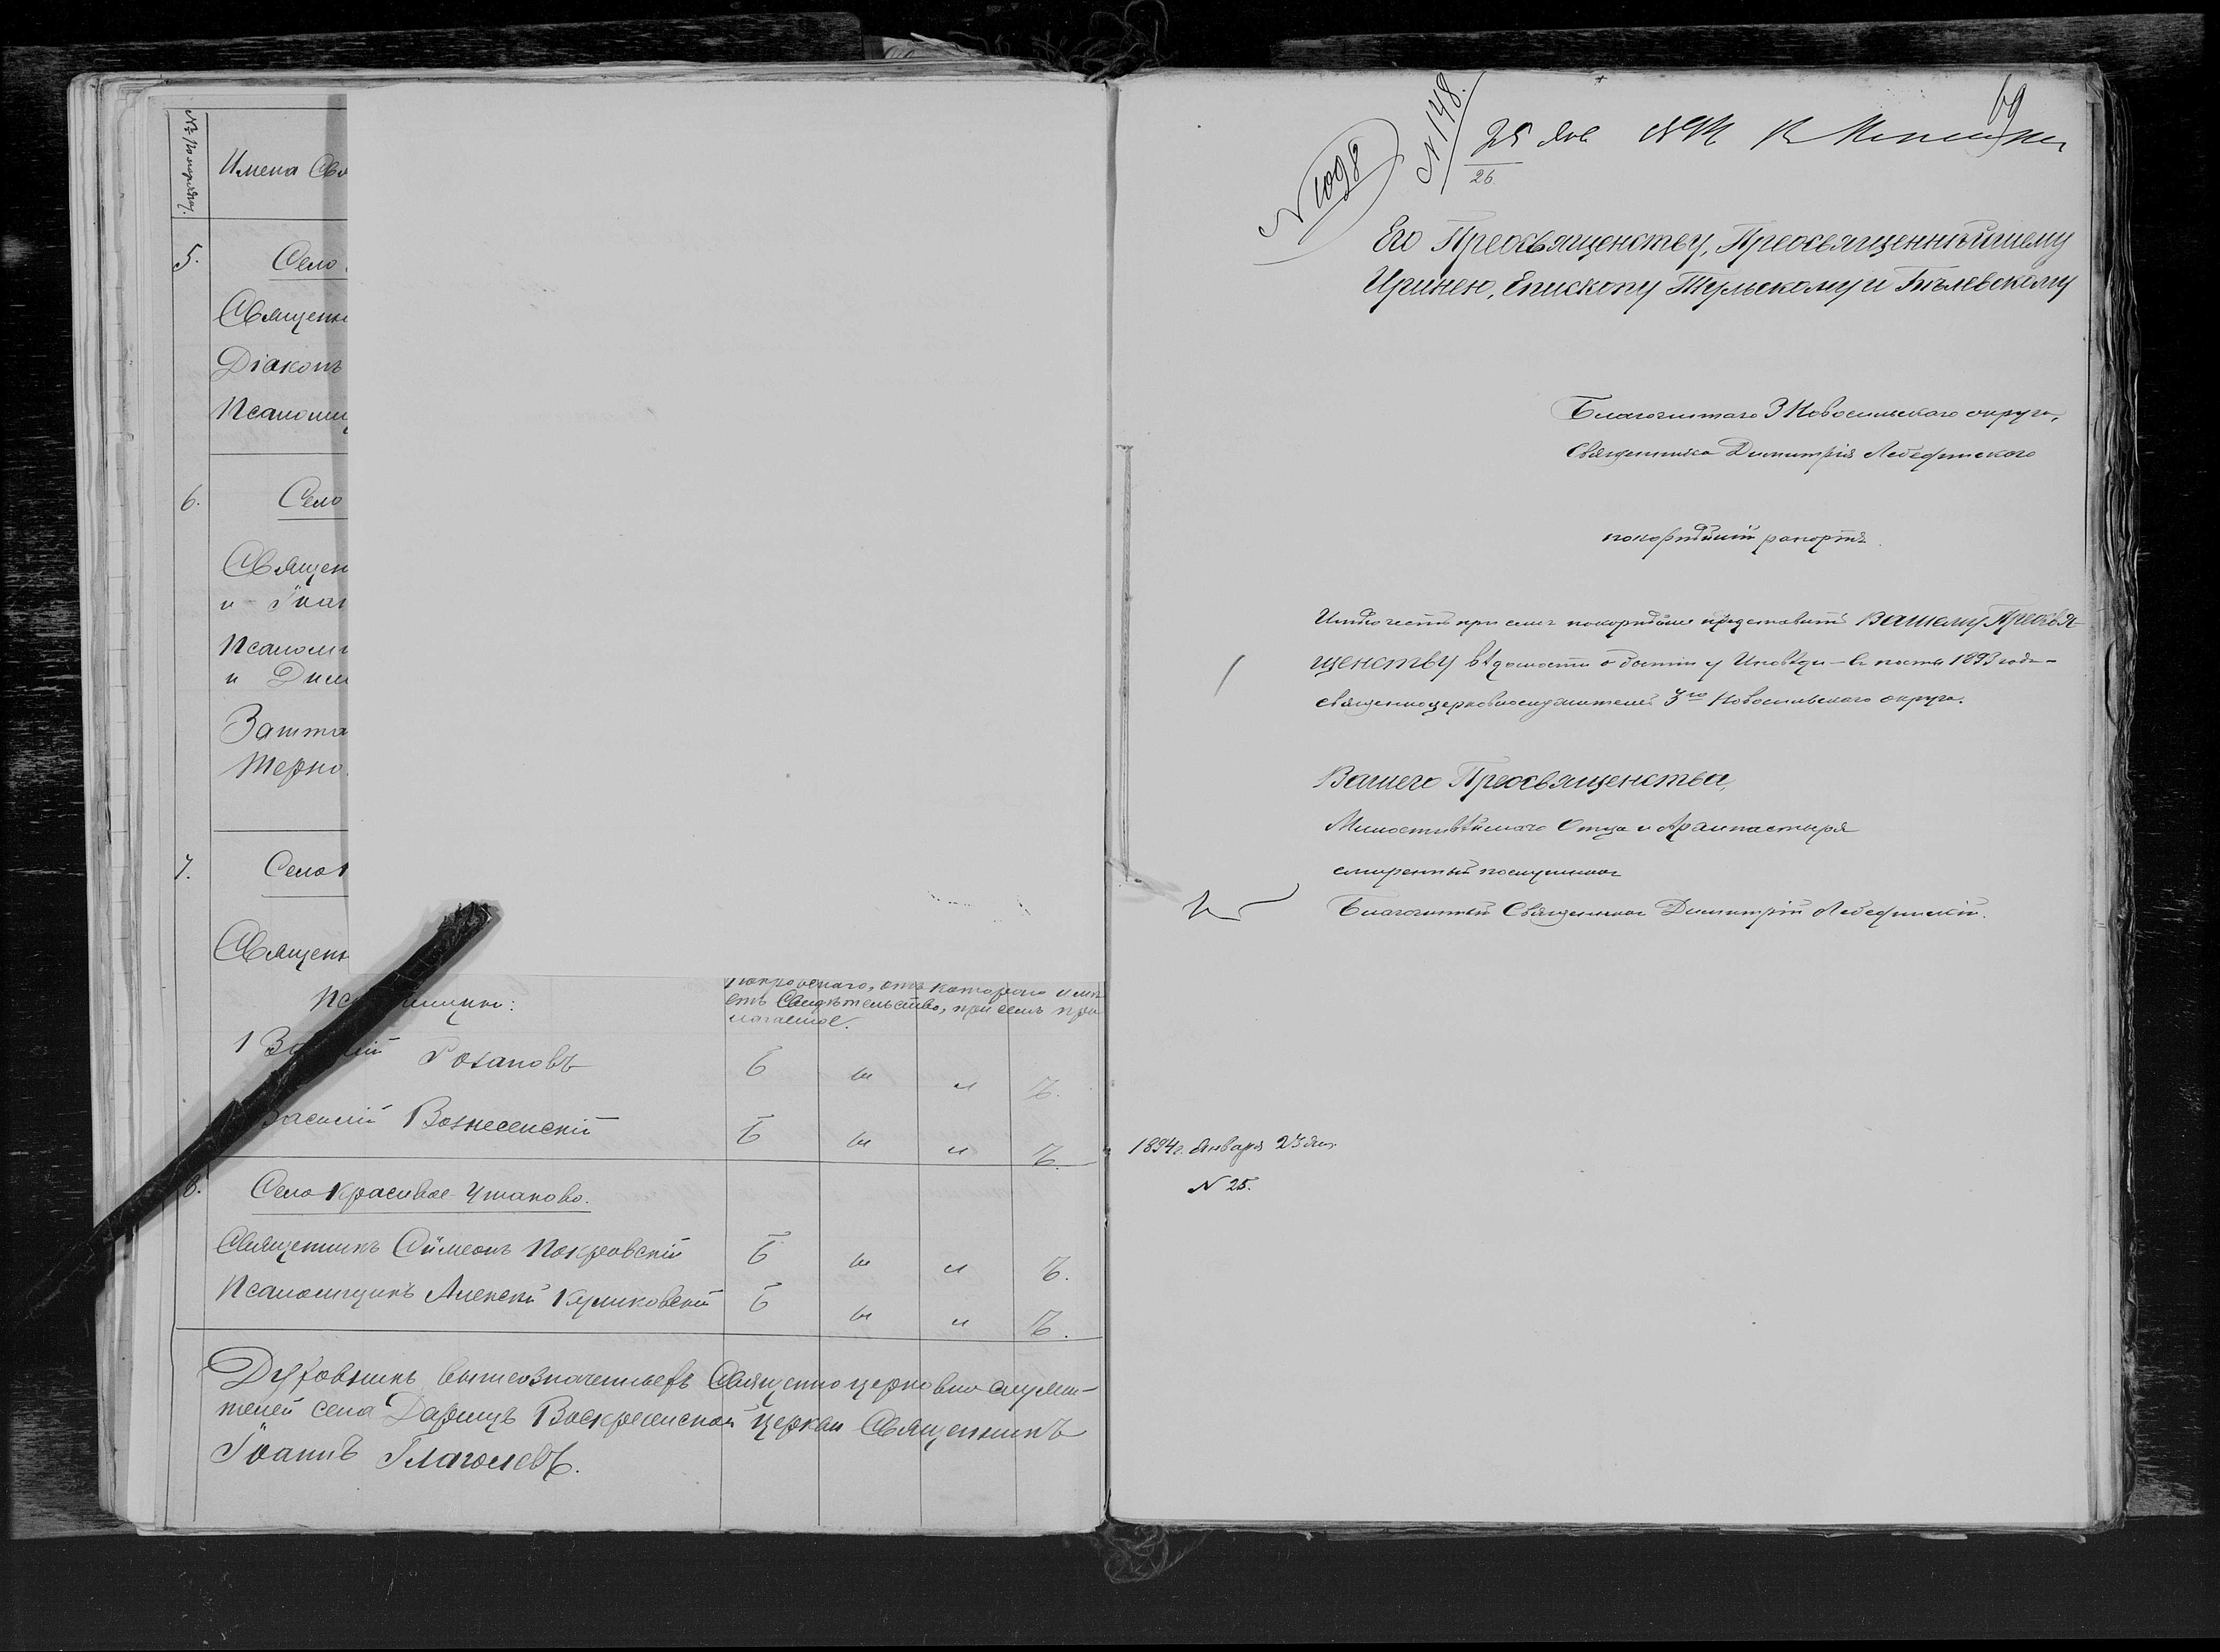 № по порядку.
Имена Свя
5.
Село
Священн
Діаконъ
Псаломщ
6.
Село
Священ
и Іоан
Псалом
и Дим
Зашта
Терно
7.
Село
Священ
Покровскаго, отъ котораго имѣ-
етъ Свидѣтельство, при семъ при-
лагаемое.
Псаломщики:
1 Розановъ
Б ы л ъ.
Василій Вознесенскій
Б ы л ъ.
8. Село Красивое-Ушаково.
Священникъ Сѵмеонъ Покровскій Б ы л ъ.
Псаломщикъ Алексѣй Куликовскій Б ы л ъ.
Духовникъ вышеозначенныхъ Священно церковно служи-
телей села Дарищъ Воскресенской церкви Священникъ
Іоаннъ Глаголевъ.
69
№ 1098
№ 148.
25 Янв
26
Его Преосвященству, Преосвященнѣйшему
Иринею, Епископу Тульскому и Бѣлевскому
Благочиннаго 3 Новосильскаго округа,
Священника Димитрія Лебедянскаго
покорнѣйшій рапортъ.
Имѣю честь при семъ покорнѣйше представить Вашему Преосвя-
щенству вѣдомости о бытіи у Исповѣди – въ посты 1893 года –
священноцерковнослужителей 3го Новосильскаго округа.
Вашего Преосвященства,
Милостивѣйшаго Отца и Архипастыря
смиренный послушникъ
Благочинный Священникъ Димитрій Лебедянскій.
1894 г. Января 23 дня.
№ 25.